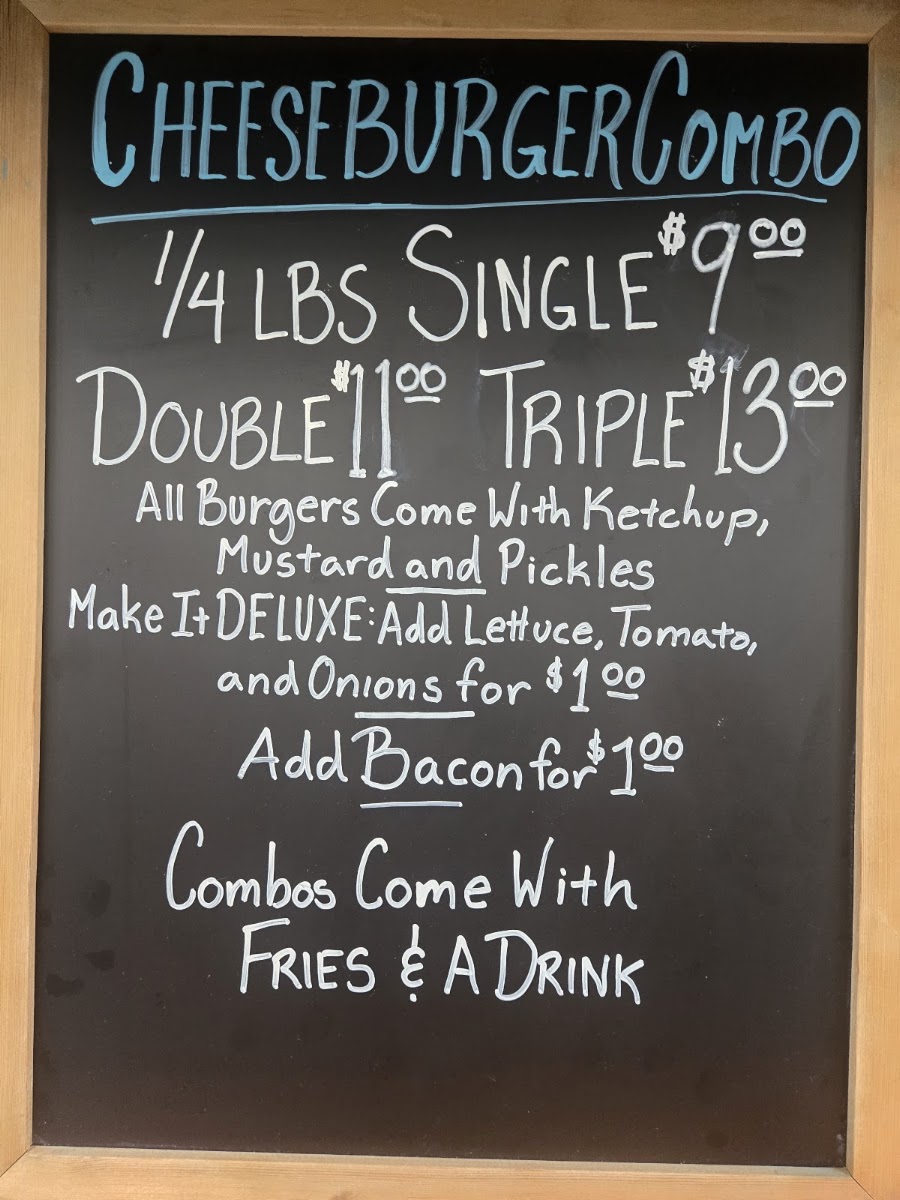 CHEESEBURGER COMBO
1/4 LBS SINGLE $9.00
DOUBLE $11.00 TRIPLE $13.00
All Burgers Come With Ketchup,
Mustard and Pickles
Make It DELUXE: Add Lettuce, Tomato,
and Onions for $1.00
Add Bacon for $1.00
Combos Come With
FRIES & A DRINK